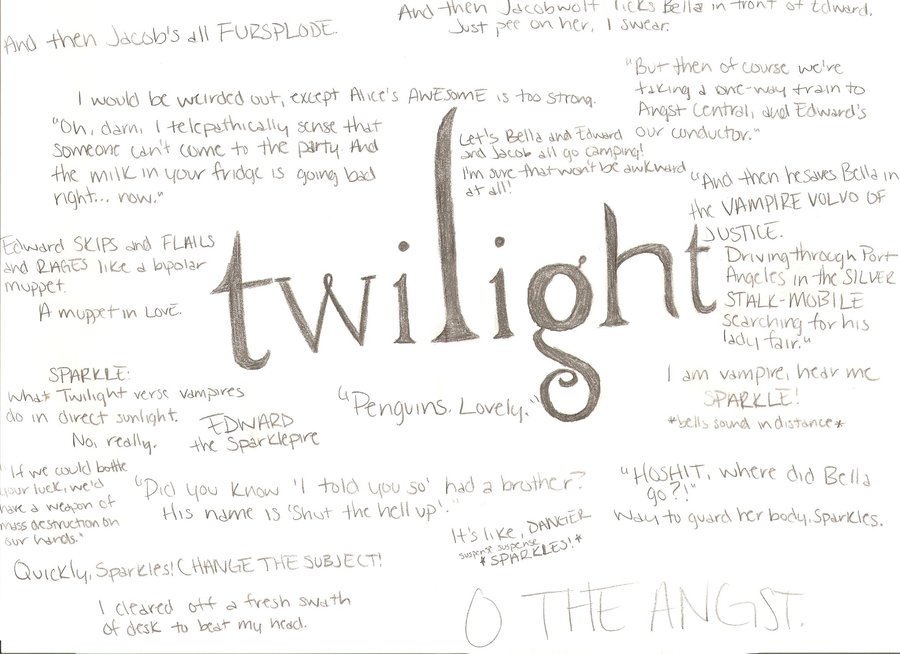 And then Jacobwolf licks Bella in front of Edward.
Just pee on her, I swear.
And then Jacob's all FURSPLODE.
I would be weirded out, except Alice's AWESOME is too strong.
"Oh, darn. I telepathically sense that
someone can't come to the party. And
the milk in your fridge is going bad
right... now."
Let's Bella and Edward
and Jacob all go camping!
I'm sure that won't be awkward
at all!
"But then of course we're
taking a one-way train to
Angst Central, and Edward's
our conductor."
"And then he saves Bella in
the VAMPIRE VOLVO OF
JUSTICE.
Driving through Port
Angeles in the SILVER
STALK-MOBILE
searching for his
lady fair."
Edward SKIPS and FLAILS
and RAGES like a bipolar
muppet.
A muppet in LOVE.
twilight
SPARKLE:
What Twilight verse vampires
do in direct sunlight.
No, really.
EDWARD
the Sparklepire
"Penguins. Lovely."
I am vampire, hear me
SPARKLE!
*bells sound in distance*
"If we could bottle
your luck, we'd
have a weapon of
mass destruction on
our hands."
"Did you know 'I told you so' had a brother?
His name is 'Shut the hell up'."
It's like, DANGER
suspense suspense
*SPARKLES!*
"HOSHIT, where did Bella
go?!"
Way to guard her body, Sparkles.
Quickly, Sparkles! CHANGE THE SUBJECT!
I cleared off a fresh swath
of desk to beat my head.
O THE ANGST.